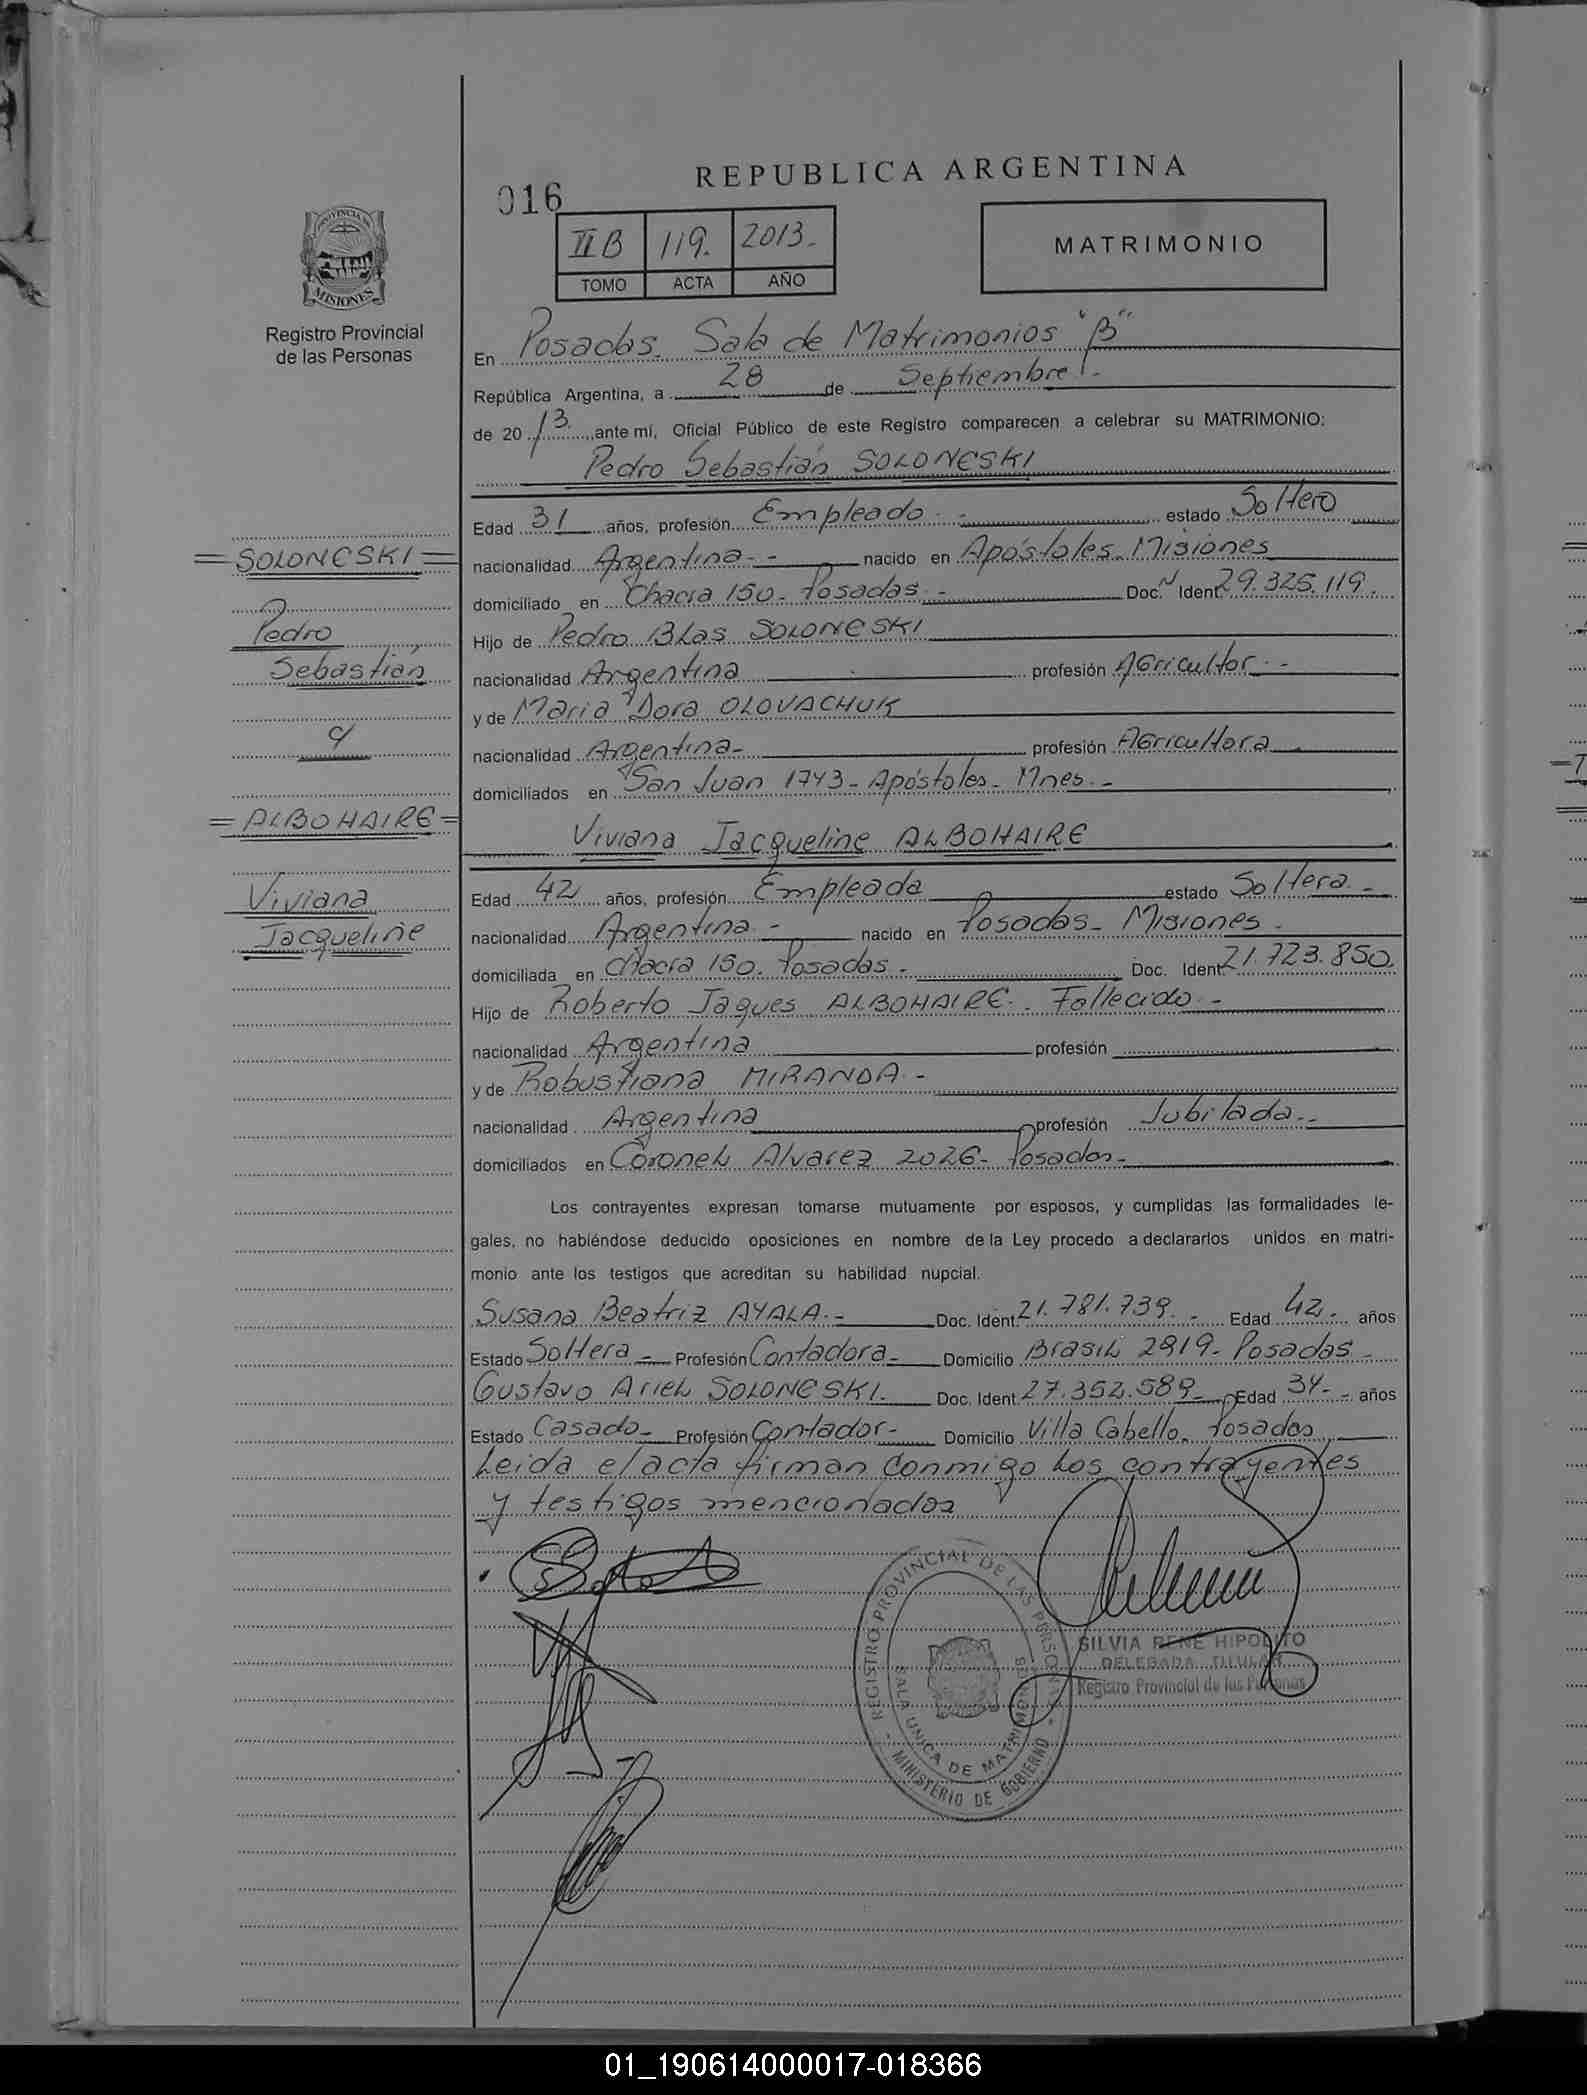 REPUBLICA ARGENTINA
016
II B 119. 2013.-
TOMO ACTA AÑO
MATRIMONIO
PROVINCIA DE
MISIONES
Registro Provincial
de las Personas
En Posadas. Sala de Matrimonios "B"
República Argentina, a 28 de Septiembre.-
de 20 13. ante mí, Oficial Público de este Registro comparecen a celebrar su MATRIMONIO:
Pedro Sebastián SOLONESKI
Edad 31 años, profesión Empleado.- estado Soltero
nacionalidad Argentina.- nacido en Apóstoles. Misiones
domiciliado en Chacra 150. Posadas.- Doc. N Ident 29.325.119.
Hijo de Pedro BLas SOLONESKI
nacionalidad Argentina profesión AGricultor.-
y de Maria Dora OLOVACHUK
nacionalidad Argentina- profesión AGricultora
domiciliados en San Juan 1743- Apóstoles. Mnes.-
Viviana Jacqueline ALBOHAIRE
Edad 42 años, profesión Empleada estado Soltera.-
nacionalidad Argentina.- nacido en Posadas- Misiones.
domiciliada en Chacra 150. Posadas.- Doc. Ident 21.723.850.
Hijo de Roberto Jaques ALBOHAIRE. Fallecido.-
nacionalidad Argentina profesión
y de Robustiana MIRANDA.-
nacionalidad Argentina profesión Jubilada.-
domiciliados en CoroneL Alvarez 2026- Posadas-
Los contrayentes expresan tomarse mutuamente por esposos, y cumplidas las formalidades le-
gales, no habiéndose deducido oposiciones en nombre de la Ley procedo a declararlos unidos en matri-
monio ante los testigos que acreditan su habilidad nupcial.
Susana Beatriz AYALA.- Doc. Ident 21.781.739.- Edad 42.- años
Estado Soltera- Profesión Contadora- Domicilio BrasiL 2819- Posadas-
Gustavo ArieL SOLONESKI. Doc. Ident 27.352.589- Edad 34.- años
Estado Casado- Profesión Contador- Domicilio Villa Cabello. Posadas
Leida el acta firman Conmigo Los contrayentes
y testigos mencionados
=SOLONESKI=
Pedro
Sebastián
c/
=ALBOHAIRE=
Viviana
Jacqueline
REGISTRO PROVINCIAL DE LAS PERSONAS
SALA UNICA DE MATRIMONIOS
MINISTERIO DE GOBIERNO
SILVIA RENE HIPOLITO
DELEGADA TITULAR
Registro Provincial de las Personas
01_190614000017-018366